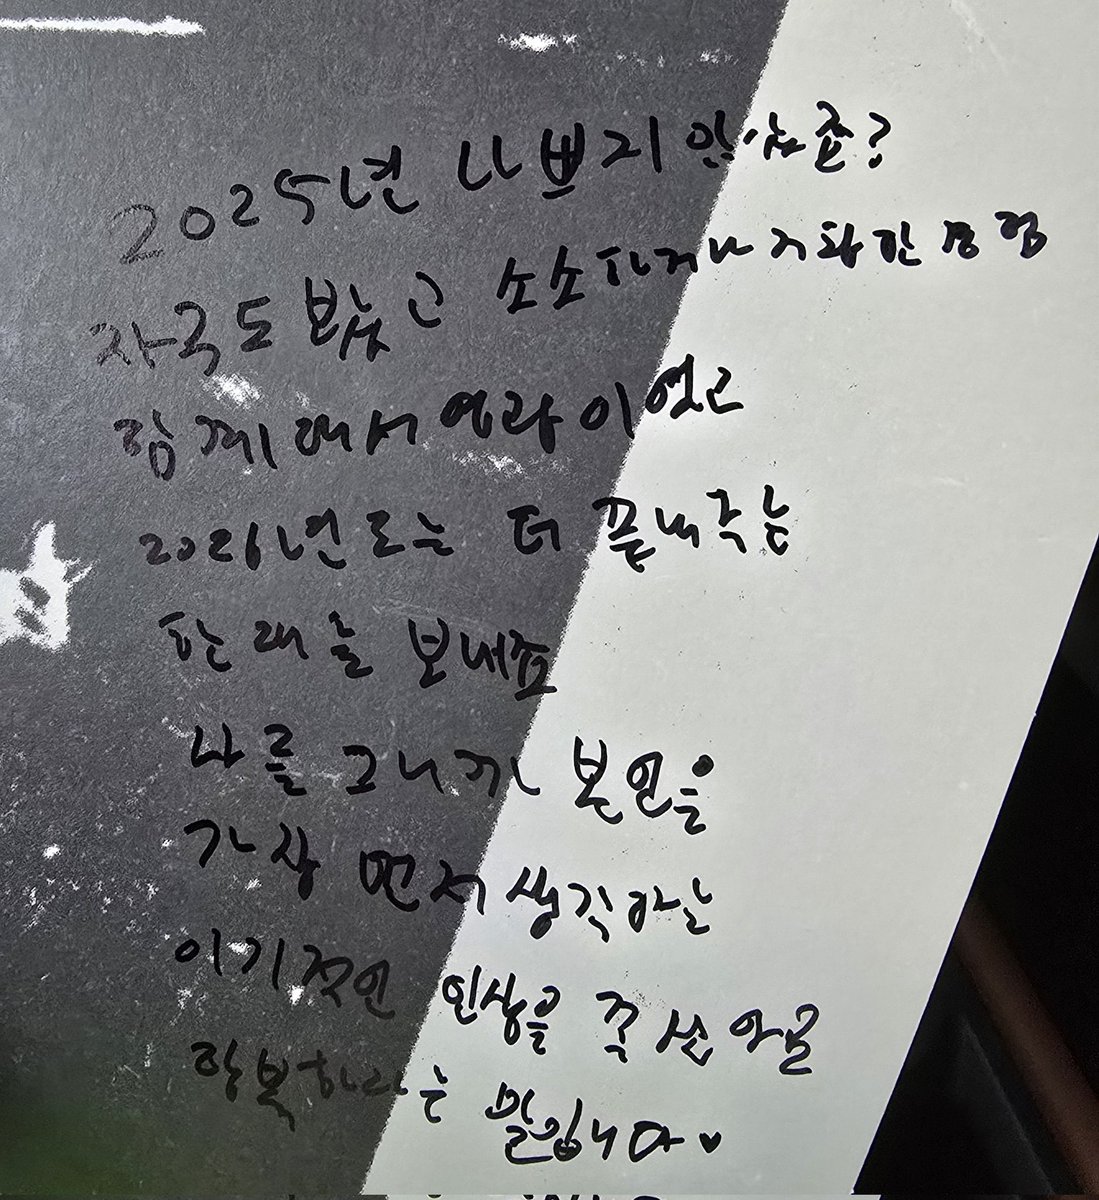 2025년 나쁘지 않았죠?
자국도 밟고 소소하거나 거창한 경험
함께해서 영광이었고
2026년도는 더 끝내주는
한해를 보내죠
나를 그니까 본인을
가장 먼저 생각하는
이기적인 인생을 죽 선
행복하라는 말입니다♥